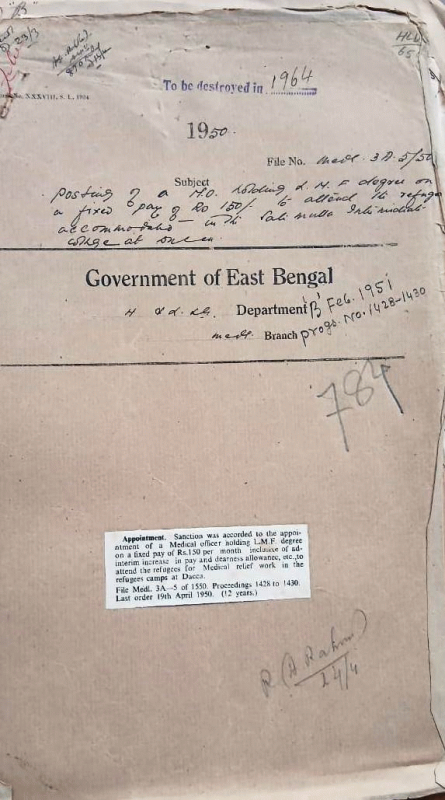 23/3
To be destroyed in 1964
No. XXXVIII, S. I., 1934
1950.
File No. Medl. 3A-5/50
Subject
Posting of a M.O. holding L.M.F degree on
a fixed pay of Rs 150/- to attend the refugees
accommodated in the Salimulla Intermediate
College at
Government of East Bengal
Department 'B' Feb. 1951
Medl. Branch Progs. No. 1428-1430
784
Appointment. Sanction was accorded to the appoi-
ntment of a Medical officer holding L.M.F. degree
on a fixed pay of Rs.150 per month inclusive of ad-
interim increase in pay and dearness allowance, etc.,to
attend the refugees for Medical relief work in the
refugees camps at Dacca.
File Medl. 3A—5 of 1550. Proceedings 1428 to 1430.
Last order 19th April 1950. (12 years.)
R (A Rahm)
24/4